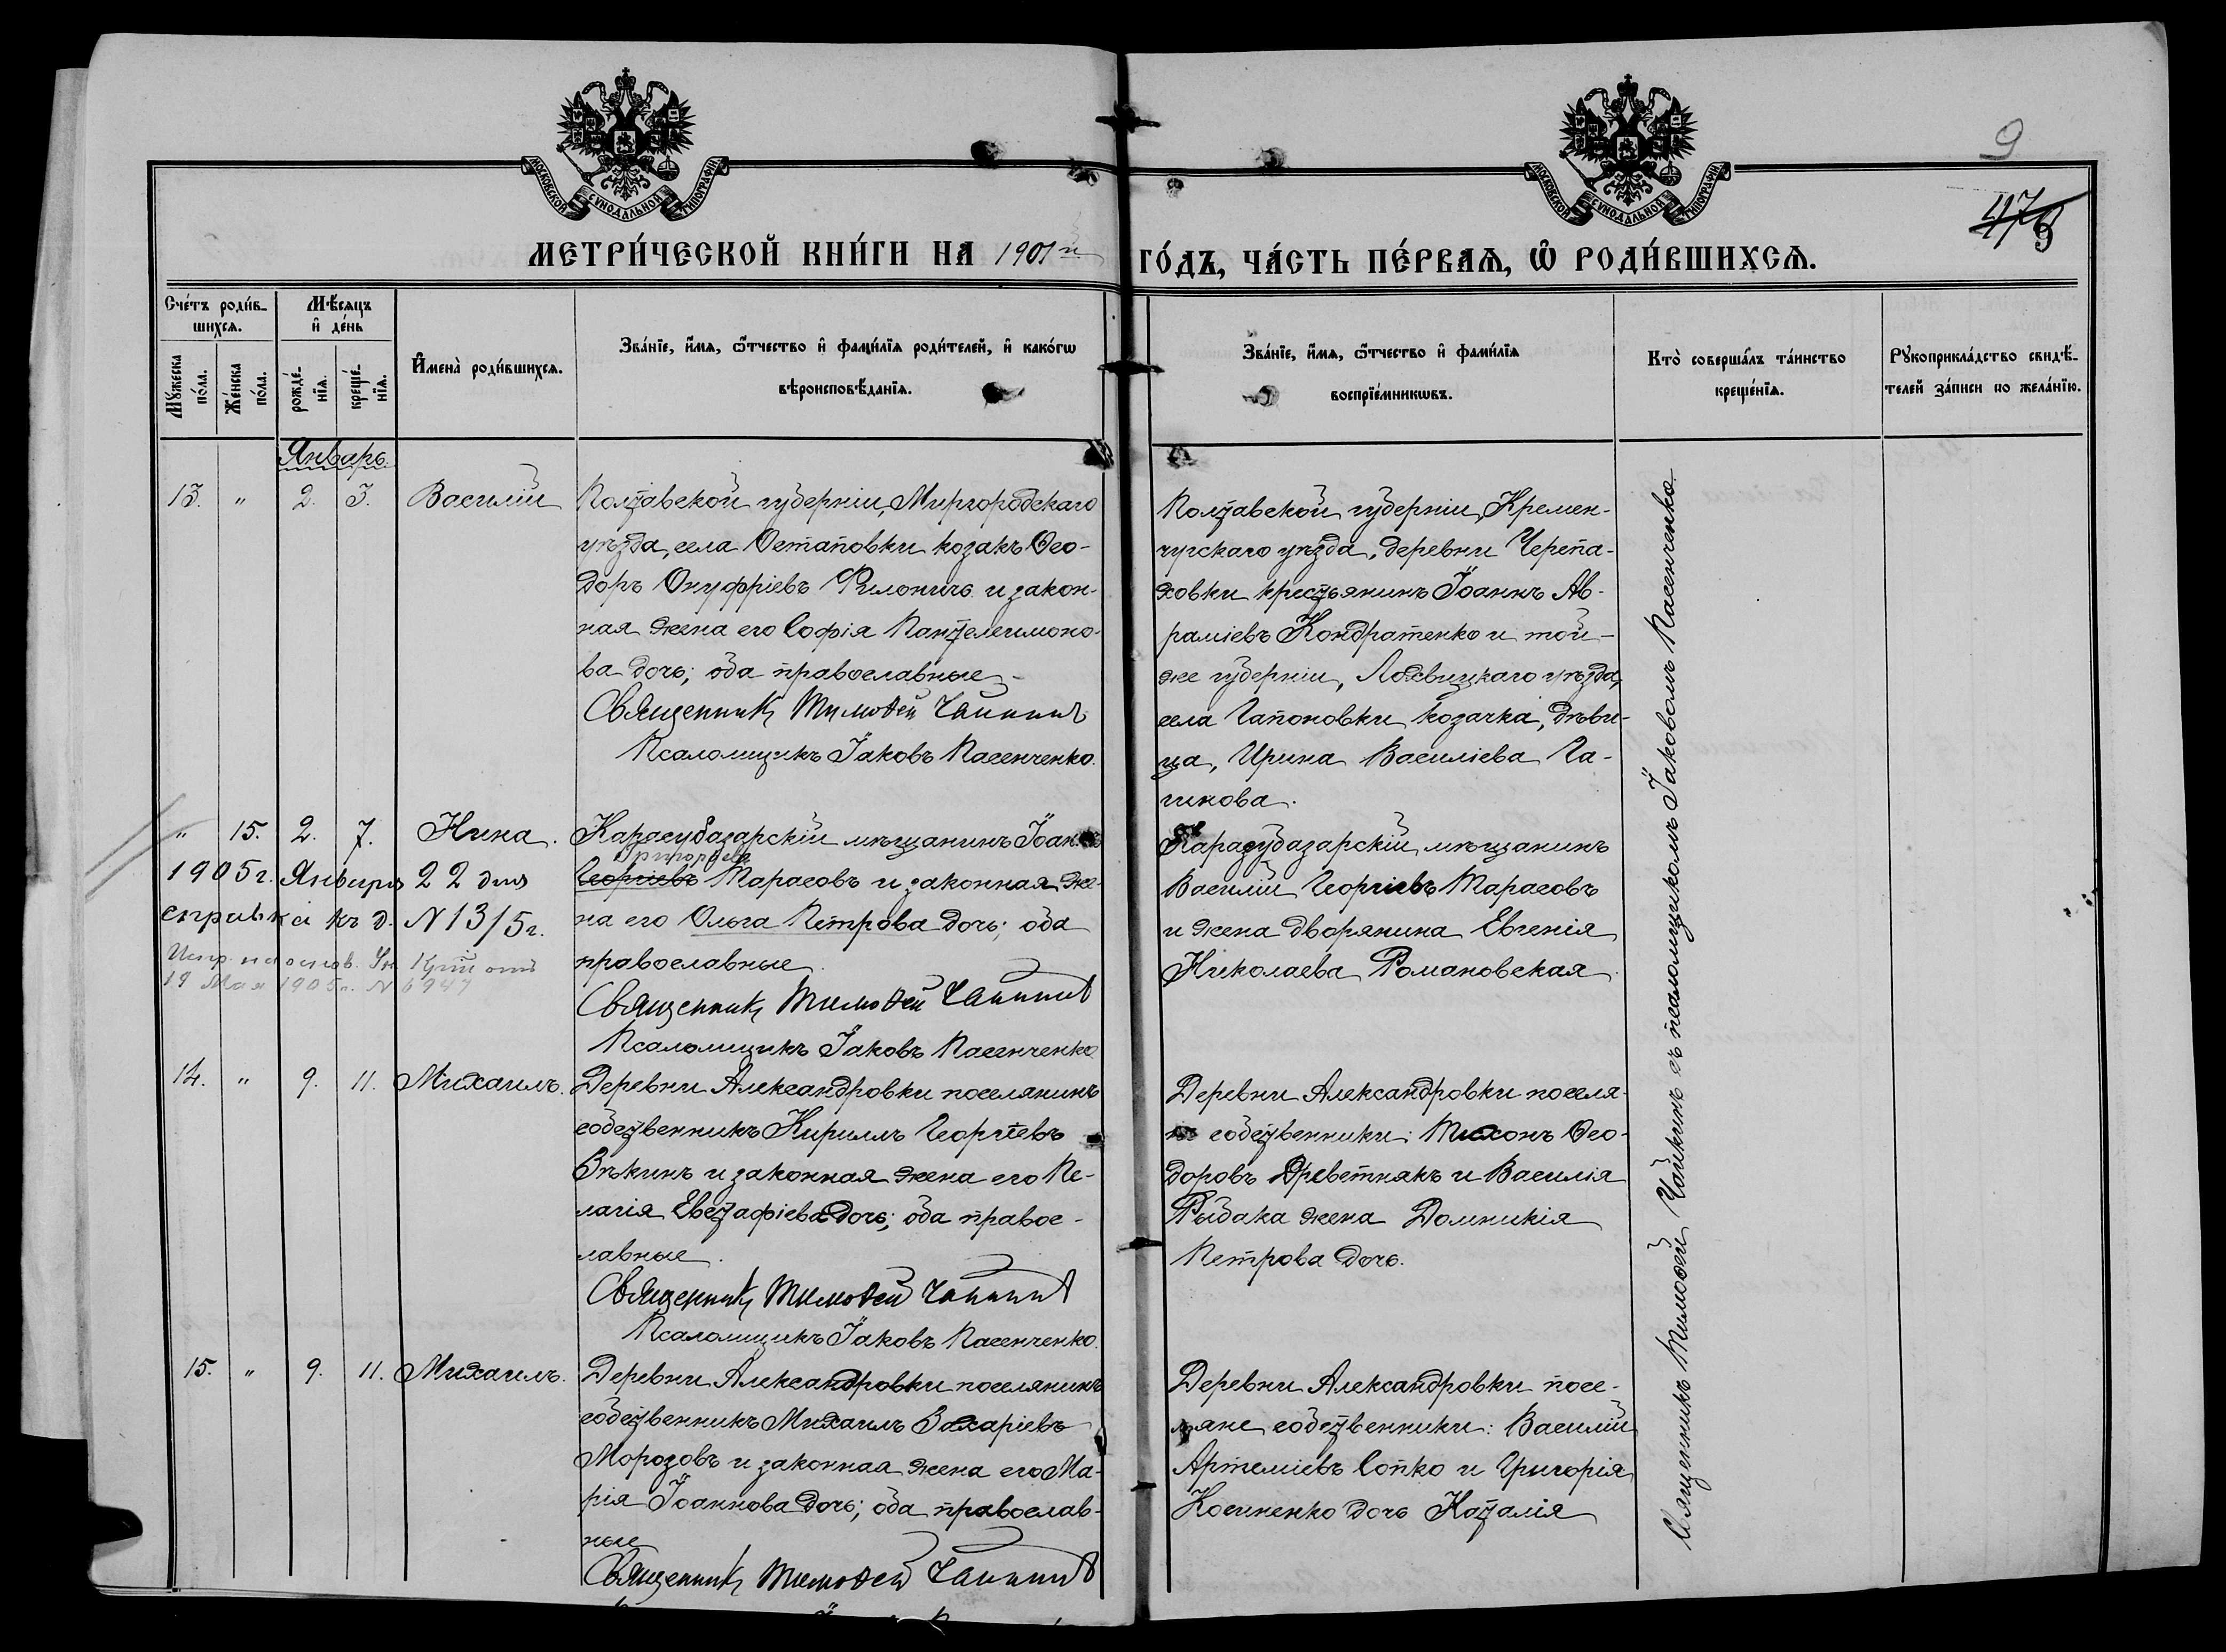 МОСКОВСКОЙ СѴНОДАЛЬНОЙ ТИПОГРАФІИ
МОСКОВСКОЙ СѴНОДАЛЬНОЙ ТИПОГРАФІИ
9
МЕТРИ́ЧЕСКОЙ КНИ́ГИ НА 1901й ГО́ДЪ, ЧА́СТЬ ПЕ́РВАѦ, Ѡ҆ РОДИ́ВШИХСѦ.
Сче́тъ роди́в-
шихсѧ.
Мꙋжеска по́ла.
Же́нска по́ла.
Мѣ́сѧцъ
и҆ де́нь
рожде́-
нїѧ.
креще́-
нїѧ.
И҆мена̀ роди́вшихсѧ.
Зва́нїе, и҆́мѧ, ѻ҆́тчество и҆ фами́лїѧ роди́телей, и҆ како́гѡ
вѣроисповѣ́данїѧ.
Зва́нїе, и҆́мѧ, ѻ҆́тчество и҆ фами́лїѧ
воспрїе́мникѡвъ.
Кто̀ соверша́лъ та́инство
креще́нїѧ.
Рꙋкоприкла́дство свидѣ́-
телей за́писи по жела́нїю.
Январь.
13. " 2. 3. Василій
Полтавской губерніи, Миргородскаго
уѣзда, села Остаповки козакъ Ѳео-
доръ Онуфріевъ Филоничъ и закон-
ная жена его Софія Пантелеимоно-
ва дочь; оба православные
Священникъ Тимоѳей Чайкинъ
Псаломщикъ Іаковъ Пасенченко.
Полтавской губерніи, Кремен-
чугскаго уѣзда, деревни Черепа-
ховки крестьянинъ Іоаннъ Ав-
раміевъ Кондратенко и той-
же губерніи, Лохвицкаго уѣзда,
села Гапоновки козачка, дѣви-
ца, Ирина Василіева Га-
шкова.
" 15. 2. 7. Нина.
Карасубазарскій мѣщанинъ Іоаннъ
Григорьевъ
Георгіевъ Тарасовъ и законная же-
на его Ольга Петрова дочь; оба
православные.
Священникъ Тимоѳей Чайкинъ
Псаломщикъ Іаковъ Пасенченко
Карасубазарскій мѣщанинъ
Василій Георгіевъ Тарасовъ
и жена дворянина Евгенія
Николаева Романовская.
1905 г. Января 22 дня
справка къ д. N 13/5 г.
Испр. на основ. Ук.
19 Мая 1905 г. N 6947
14. " 9. 11. Михаилъ.
Деревни Александровки поселянинъ
собственникъ Кириллъ Георгіевъ
Вѣкинъ и законная жена его Пе-
лагія Евстафіева дочь; оба правос-
лавные.
Священникъ Тимоѳей Чайкинъ
Псаломщикъ Іаковъ Пасенченко.
Деревни Александровки поселя-
не собственники: Тихонъ Ѳео-
доровъ Древетнякъ и Василія
Рыбака жена Домникія
Петрова дочь.
15. " 9. 11. Михаилъ.
Деревни Александровки поселянинъ
собственникъ Михаилъ Захаріевъ
Морозовъ и законная жена его Ма-
рія Іоаннова дочь; оба православ-
ные
Священникъ Тимоѳей Чайкинъ
Деревни Александровки посе-
ляне собственники: Василій
Артеміевъ Сопко и Григорія
Косиненко дочь Наталія
Священникъ Тимоѳей Чайкинъ съ псаломщикомъ Іаковомъ Пасенченко.